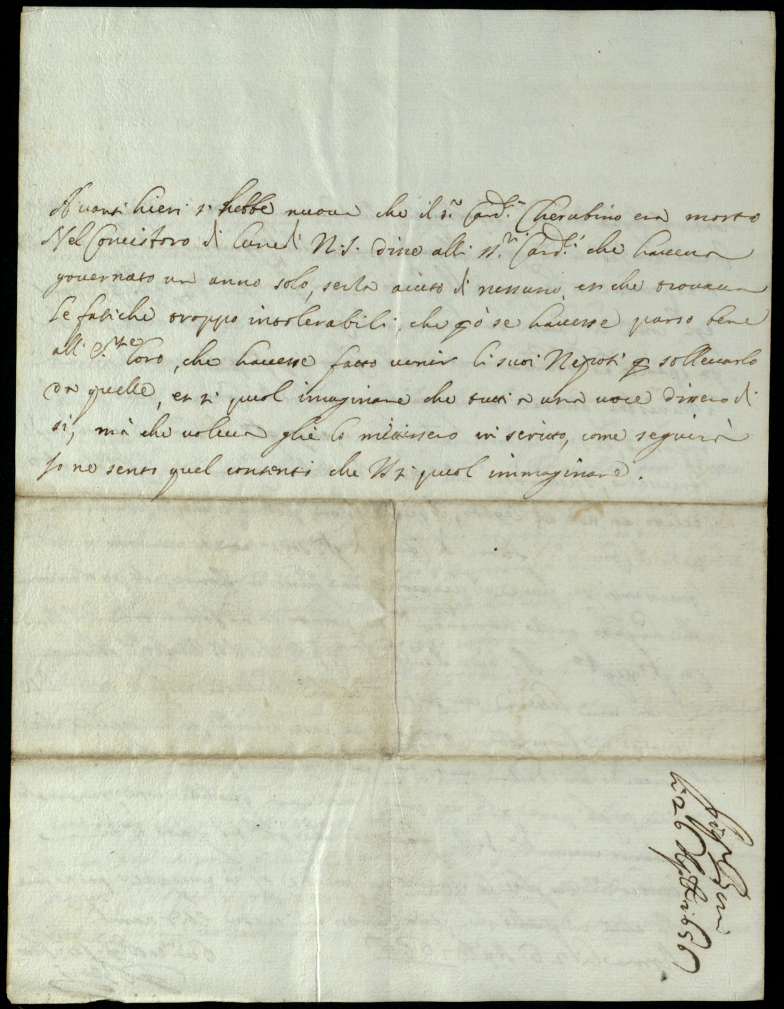 Avanti hieri si hebbe nuova che il s.r Card.l Cherubino era morto
Nel Concistoro di lunedi N.S. disse alli ss.ri Card.li che haveva
governato un anno solo, senza aiuto di nessuno, et che trovava
le fatiche troppo intolerabili, che però se havesse parso bene
all' E.ze loro, che havesse fatto venir li suoi Nepoti p sollevarlo
da quelle, et si puol imaginare che tutti a una voce dissero di
si, mà che voleva glie lo mettessero in scritto, come seguirà
Io ne sento quel contento che si puol immaginare.
li 26 1656